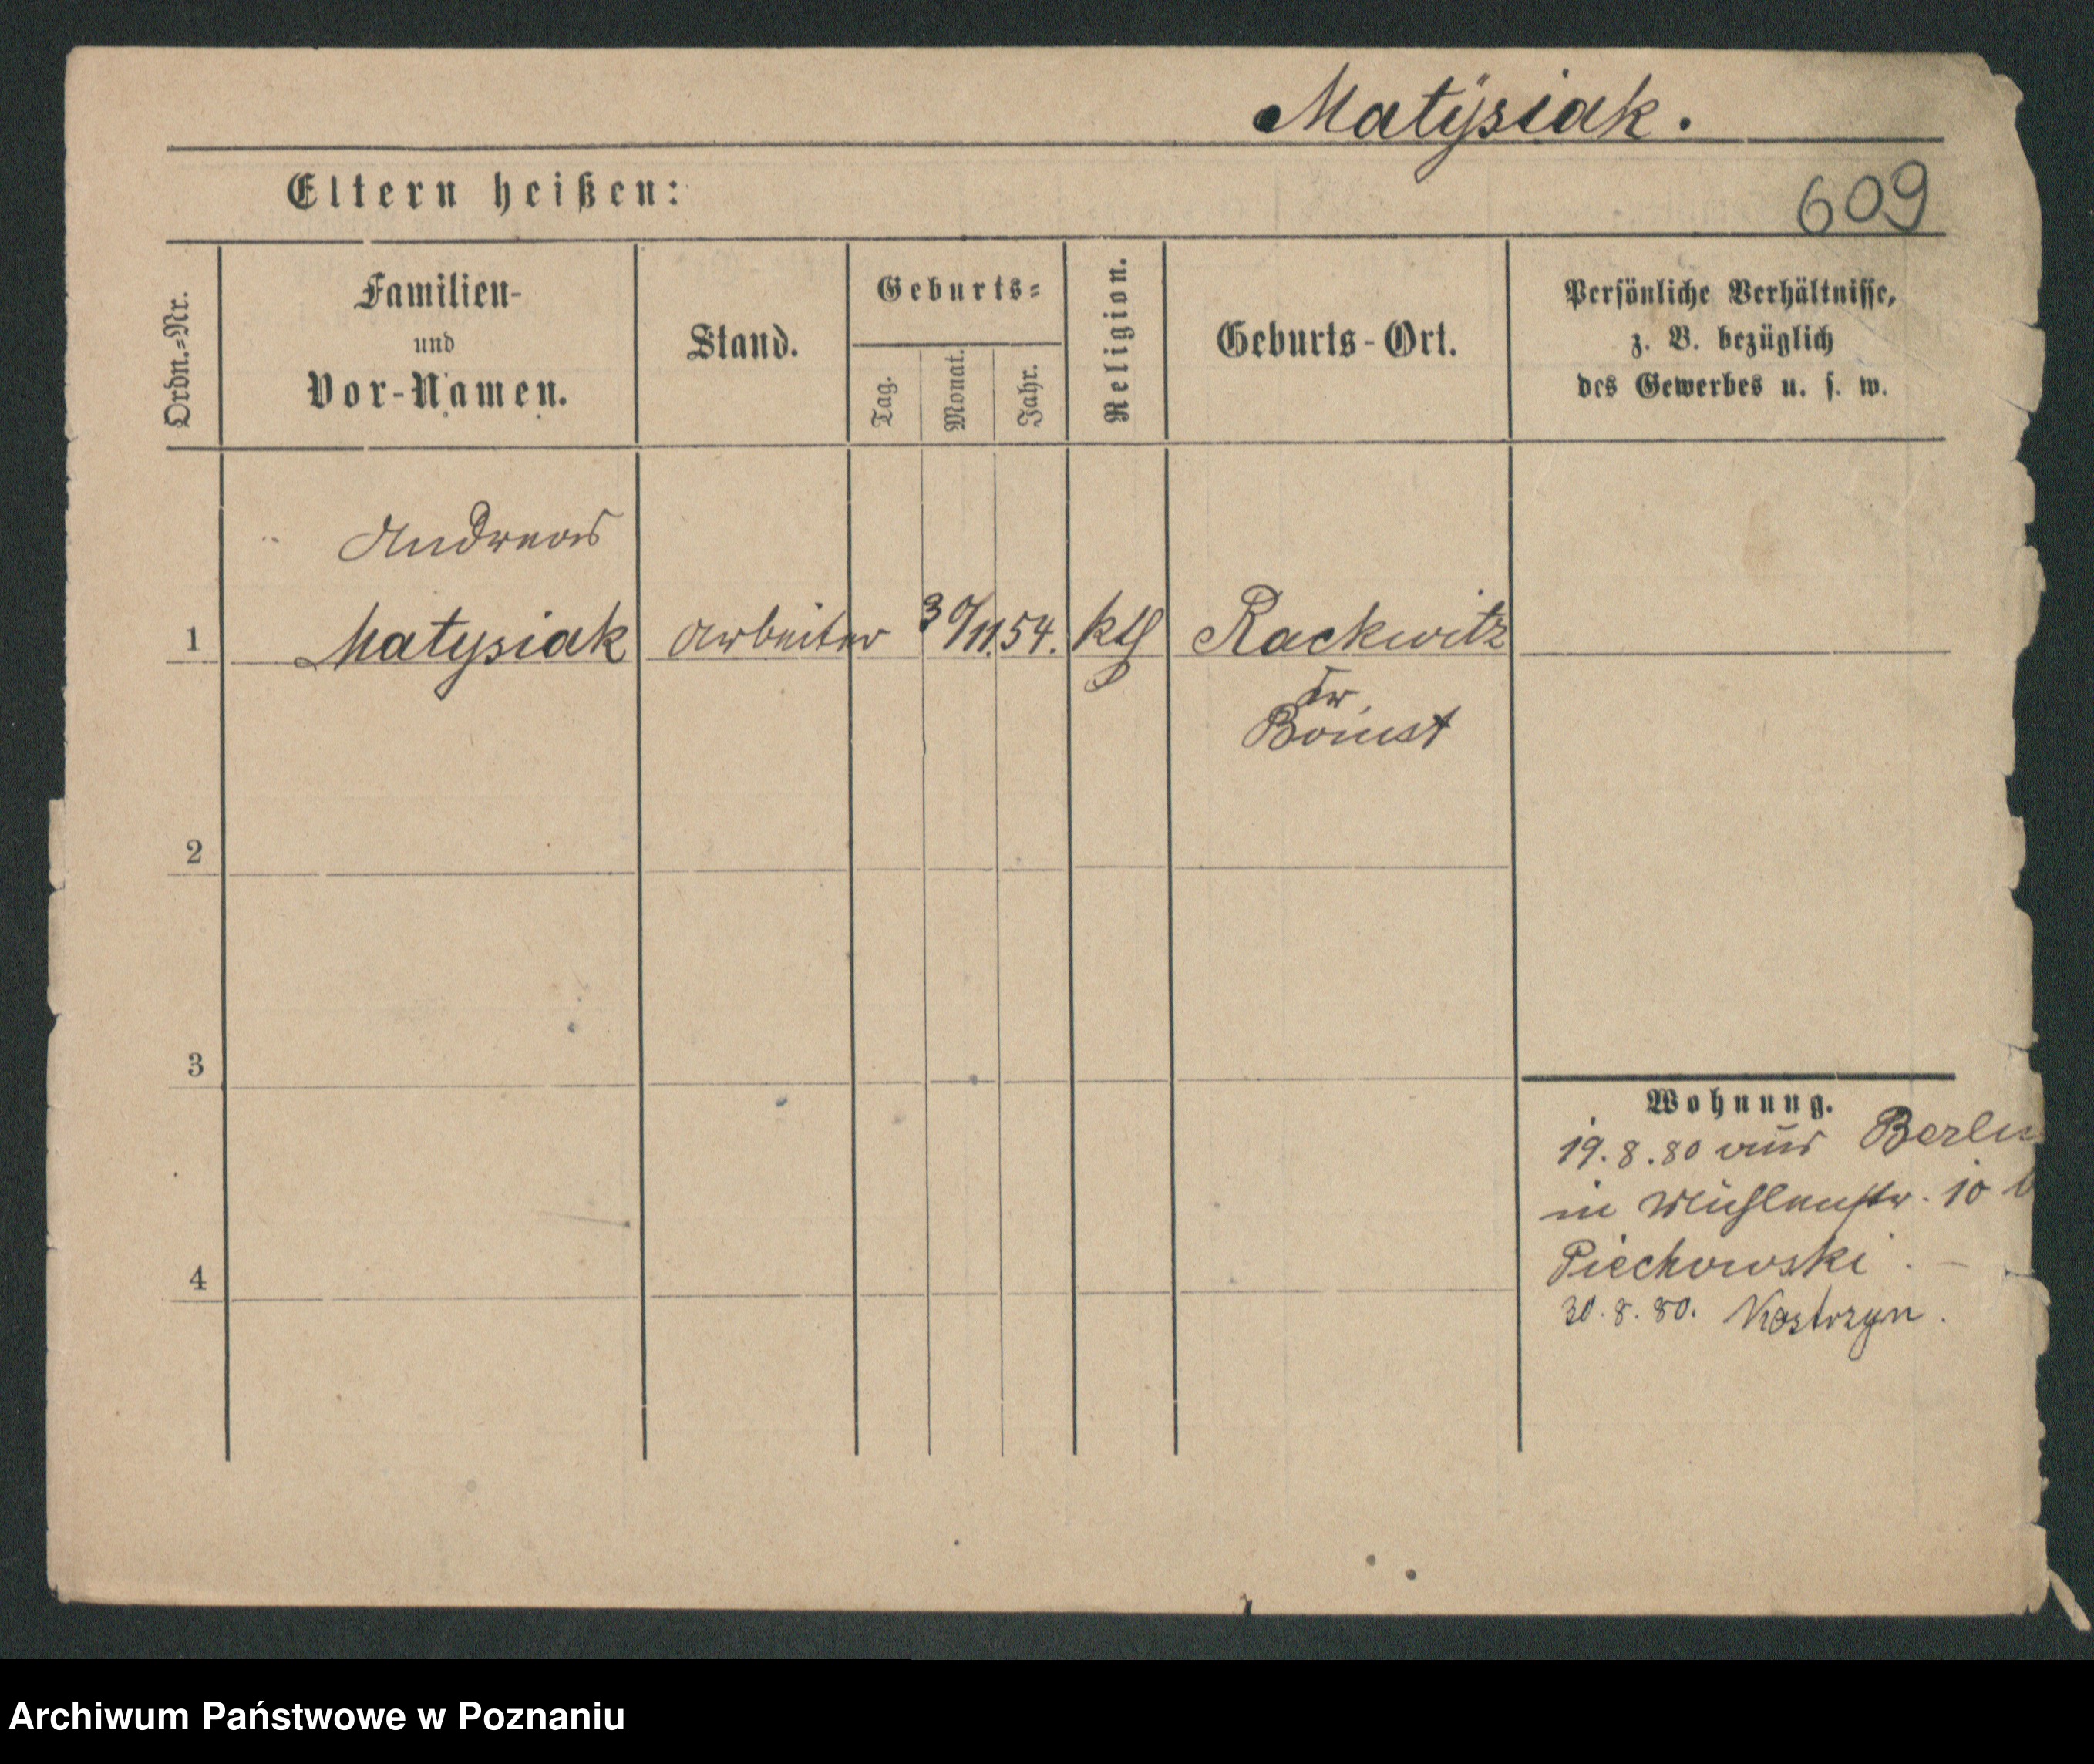 Matÿsiak.
Eltern heißen:
609
Ordn.=Nr.
Familien-
und
Vor-Namen.
Stand.
Geburts=
Tag.
Monat.
Jahr.
Religion.
Geburts-Ort.
Persönliche Verhältnisse,
z. B. bezüglich
des Gewerbes u. s. w.
Andreas
1 Matysiak Arbeiter 30/11.54. kth Rackwitz
Kr.
Bomst
2
3
4
Wohnung.
19.8.80 aus Berlin
in Mühlenstr. 10 b
Piechowski. –
30.8.80. Kostrzyn.
Archiwum Państwowe w Poznaniu